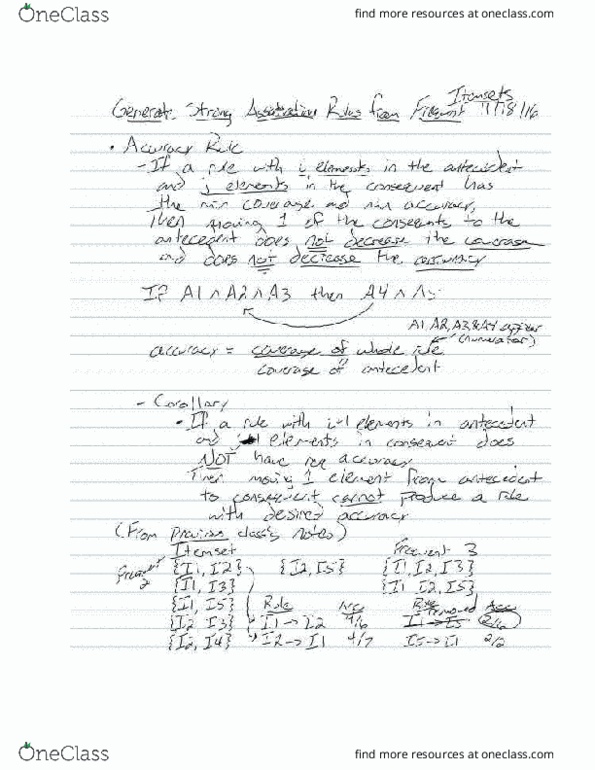 OneClass
find more resources at oneclass.com
Itemsets
Generate Strong Association Rules from Frequent 11/18/16
• Accuracy Rule
- If a rule with i elements in the antecedent
and j elements in the consequent has
the min coverage and min accuracy,
then moving 1 of the conseqents to the
antecedent does not decrease the coverage
and does not decrease the accuracy
If A1 ∧ A2 ∧ A3 then A4 ∧ A5
A1, A2, A3, & A4 appear
(numerator)
accuracy = coverage of whole rule
coverage of antecedent
- Corollary
• If a rule with i+1 elements in antecedent
and elements in consequent does
NOT have accuracy
Then moving 1 element from antecedent
to consequent cannot produce a rule
with desired accuracy
(From previous class's notes)
Itemset Frequent 3
Frequent 2 {I1, I2} {I2, I5} {I1, I2, I3}
{I1, I3} {I1, I2, I5}
{I1, I5} Rule Acc Rule Removed Acc
{I2, I3} I1 → I2 4/6 I1 → I5 2/6
{I2, I4} I2 → I1 4/7 I5 → I1 2/2
OneClass
find more resources at oneclass.com